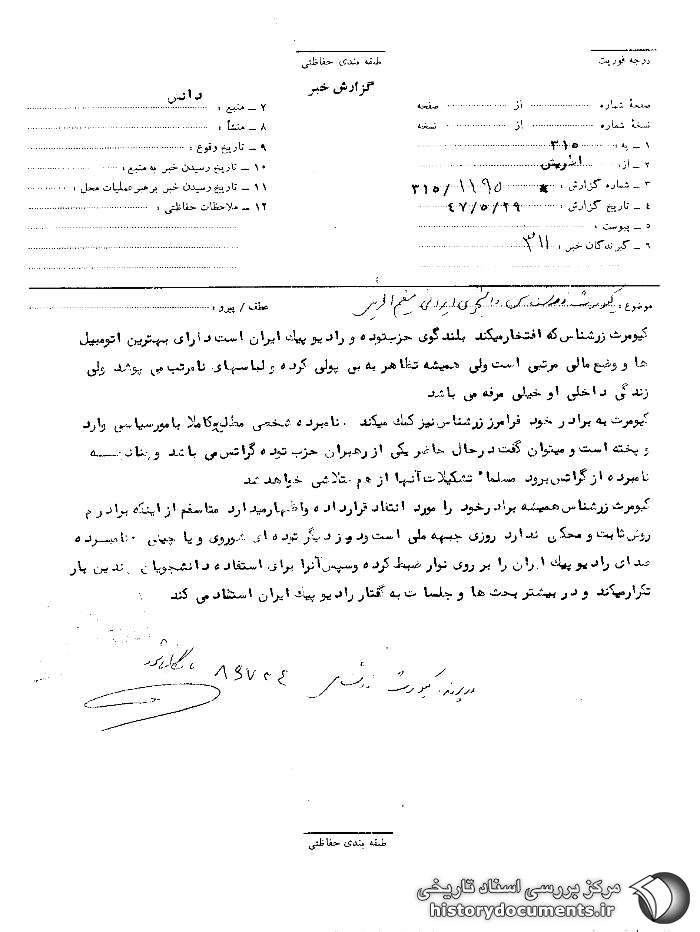 درجه فوریت
طبقه بندی حفاظتی
گزارش خبر
صفحهٔ شماره از صفحه
نسخهٔ شماره از نسخه
۱ ـ به : ۳۱۵
۲ ـ از : اطریش
۳ ـ شماره گزارش : ۳۱۵/۱۱۹۵
۴ ـ تاریخ گزارش : ۴۷/۵/۲۹
۵ ـ پیوست :
۶ ـ گیرندگان خبر : ۳۱۱
۷ ـ منبع : دانس
۸ ـ منشأ :
۹ ـ تاریخ وقوع :
۱۰ ـ تاریخ رسیدن خبر به منبع :
۱۱ ـ تاریخ رسیدن خبر برهبر عملیات محل :
۱۲ ـ ملاحظات حفاظتی :
موضوع : کیومرث زرشناس دانشجوی ایرانی مقیم اطریش
عطف / پیرو :
کیومرث زرشناس که افتخار میکند بلندگوی حزب توده و رادیو پیک ایران است دارای بهترین اتومبیل
ها و وضع مالی مرتبی است ولی همیشه تظاهر به بی پولی کرده و لباسهای نامرتب می پوشد ولی
زندگی داخلی او خیلی مرفه می باشد
کیومرث به برادر خود فرامرز زرشناس نیز کمک میکند . نامبرده شخصی مطلع کاملا بامور سیاسی وارد
و پخته است و میتوان گفت درحال حاضر یکی از رهبران حزب توده گراتس می باشد و چنانچه
نامبرده از گراتس برود مسلماً تشکیلات آنها از هم متلاشی خواهد شد
کیومرث زرشناس همیشه برادر خود را مورد انتقاد قرار داده و اظهار میدارد متاسفم از اینکه برادرم
روش ثابت و محکمی ندارد روزی جبهه ملی است و روز دیگر توده ای شوروی و یا چینی . نامبرده
صدای رادیو پیک ایران را بر روی نوار ضبط کرده و سپس آنرا برای استفاده دانشجویان چندین بار
تکرار میکند و در بیشتر بحث ها و جلسات به گفتار رادیو پیک ایران استناد می کند .
در پرونده کیومرث زرشناس ۸۹۷۰۴ بایگانی شود
طبقه بندی حفاظتی
مرکز بررسی اسناد تاریخی
historydocuments.ir